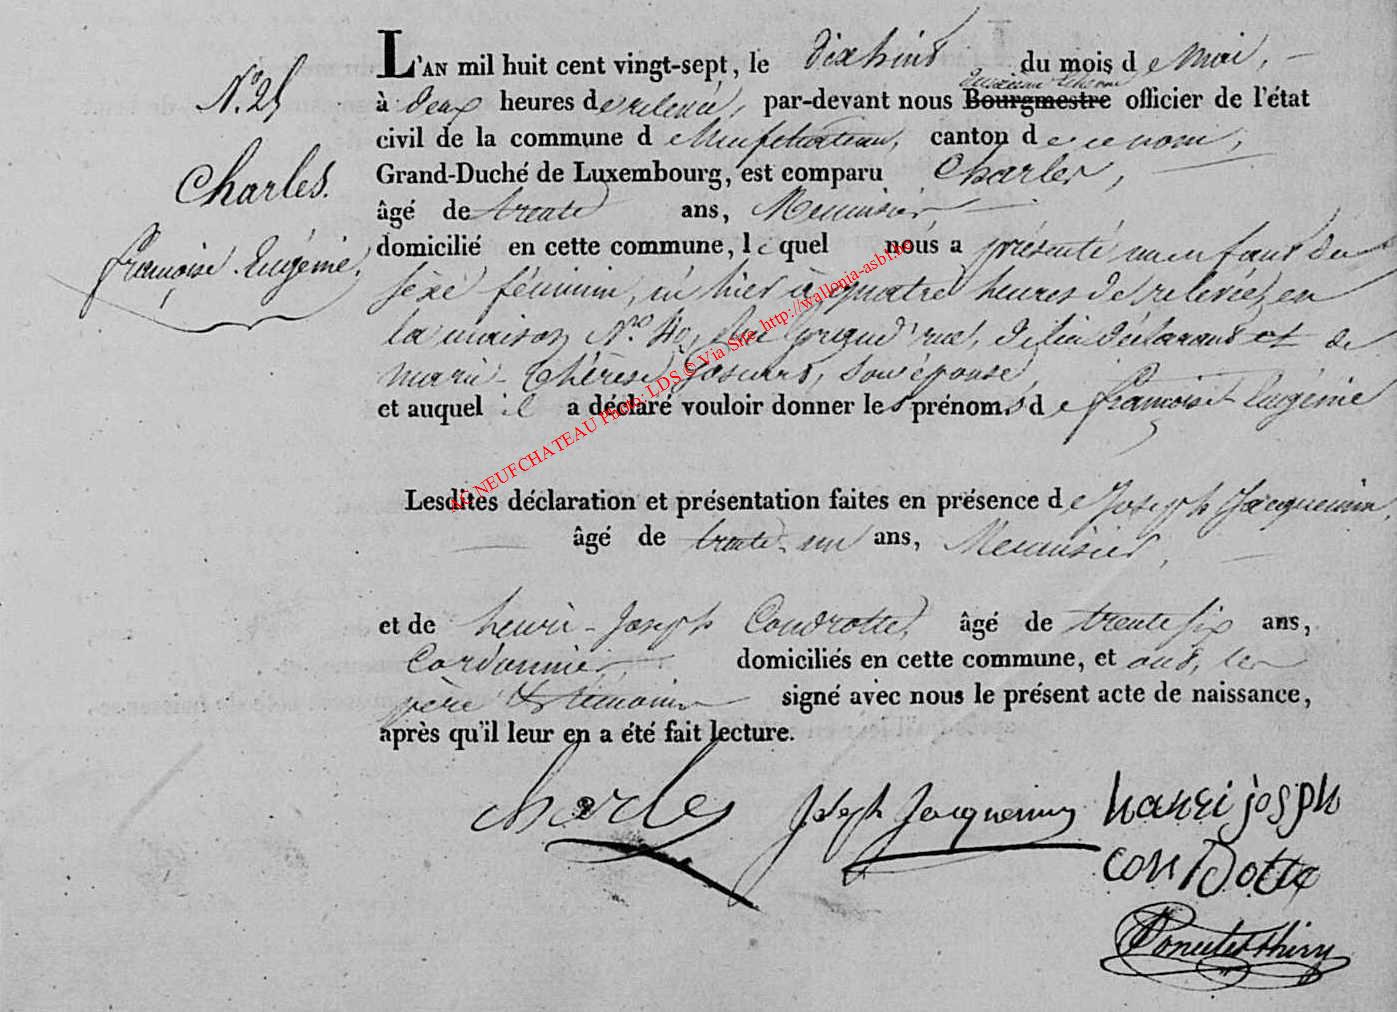 N.° 25
Charles.
françoise Eugénie.
L'AN mil huit cent vingt-sept, le dix huit du mois de Mai,
deuxième Echevin
à deux heures de relevée, par-devant nous Bourgmestre officier de l'état
civil de la commune de Neufchateau, canton de ce nom,
Grand-Duché de Luxembourg, est comparu Charles,
âgé de trente ans, Menuisier,
domicilié en cette commune, lequel nous a présenté un enfant du
sexe féminin, né hier à quatre heures de relevée, en
la maison N.ro 40, rue de lui déclarant et de
marie-Thérèse son épouse,
et auquel il a déclaré vouloir donner les prénoms de françoise Eugénie
Lesdites déclaration et présentation faites en présence de Joseph Jacquemin,
âgé de trente-un ans, Menuisier,
et de henri-Joseph Condrotte, âgé de trente six ans,
Cordonnier domiciliés en cette commune, et ont, les
père & témoins signé avec nous le présent acte de naissance,
après qu'il leur en a été fait lecture.
charles Joseph Jacquemin hanri josph
condrotte
AC NEUFCHATEAU Photo: LDS © Via Site http://wallonia-asbl.be